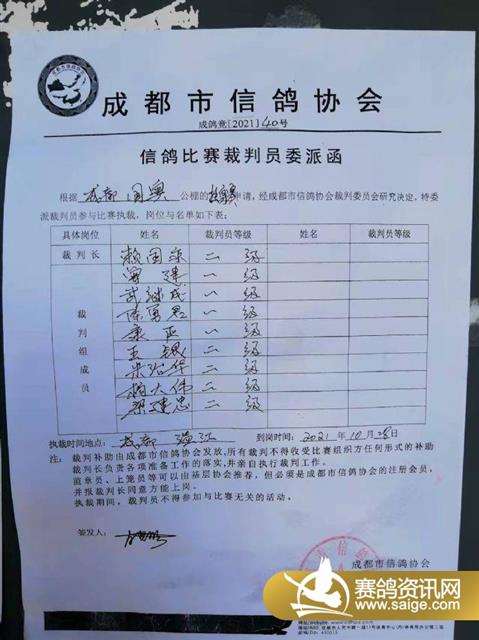 成都市信鸽协会
成鸽竞[2021]40号
信鸽比赛裁判员委派函
根据 成都 国奥 公棚的 申请，经成都市信鸽协会裁判委员会研究决定，特委
派裁判员参与比赛执裁，岗位与名单如下表：
具体岗位 姓名 裁判员等级 姓名 裁判员等级
裁判长 赖国 二级
建 一级
武继成 一级
陈勇君 一级
康 二级
王 二级
宋 华 二级
大伟 二级
建忠 二级
裁判组成员
执裁时间地点： 成都 温江 到岗时间：2021年10月28日
注： 裁判补助由成都市信鸽协会发放，所有裁判不得收受比赛组织方任何形式的补助
裁判长负责各项准备工作的落实，并亲自执行裁判工作。
监章员、上笼员等可以由基层协会推荐，但必须是成都市信鸽协会的注册会员，
并报裁判长同意方能上岗。
执裁期间，裁判员不得参加与比赛无关的活动。
签发人：
成都市信鸽协会
赛鸽资讯网
www.saige.com